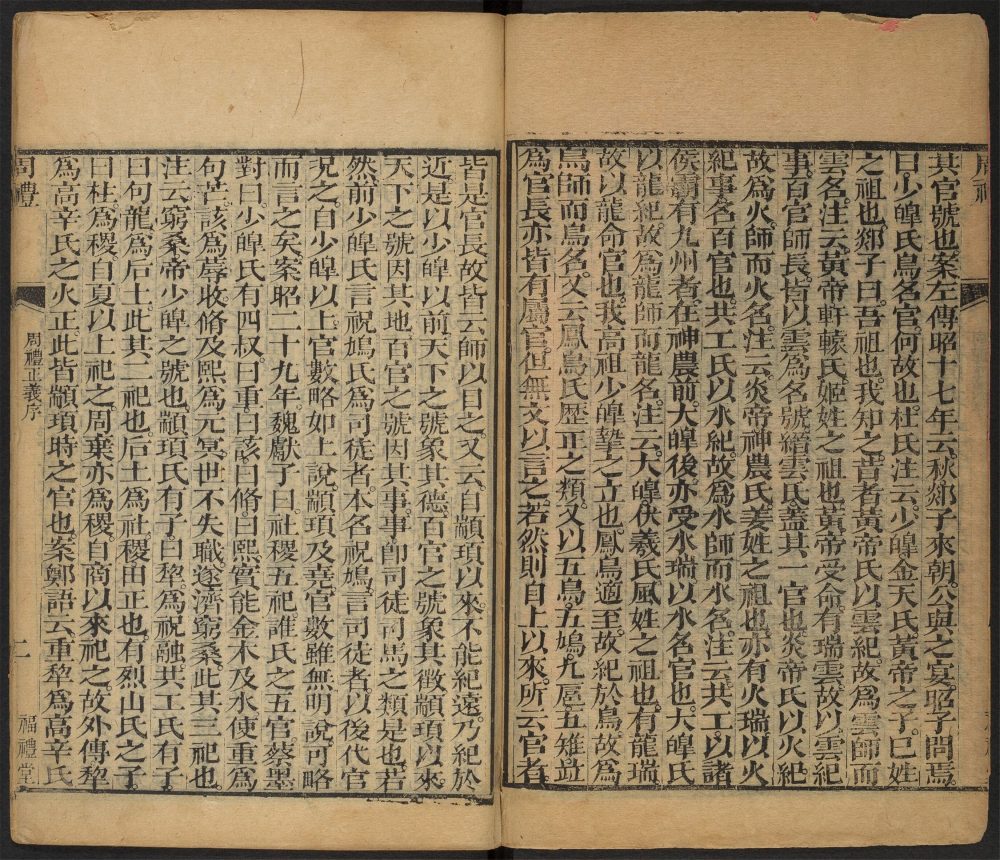 周禮
其官號也案左傳昭十七年云秋郯子來朝公與之宴昭子問焉
曰少皥氏鳥名官何故也杜氏注云少皥金天氏黃帝之子已姓
之祖也郯子曰吾祖也我知之昔者黃帝氏以雲紀故為雲師而
雲名注云黃帝軒轅氏姬姓之祖也黃帝受命有瑞雲故以雲紀
事百官師長皆以雲為名號縉雲氏蓋其一官也炎帝氏以火紀
故為火師而火名注云炎帝神農氏姜姓之祖也亦有火瑞以火
紀事名百官也共工氏以水紀故為水師而水名注云共工以諸
侯霸有九州者在神農前大皥後亦受水瑞以水名官也大皥氏
以龍紀故為龍師而龍名注云大皥伏羲氏風姓之祖也有龍瑞
故以龍命官也我高祖少皥摯之立也鳳鳥適至故紀於鳥故為
鳥師而鳥名又云鳳鳥氏歷正之類又以五鳥五鳩九扈五雉並
為官長亦皆有屬官但無文以言之若然則自上以來所云官者
皆是官長故皆云師以目之又云自顓頊以來不能紀遠乃紀於
近是以少皥以前天下之號象其德百官之號象其徵顓頊以來
天下之號因其地百官之號因其事事即司徒司馬之類是也若
然前少皥氏言祝鳩氏為司徒者本名祝鳩言司徒者以後代官
況之自少皥以上官數略如上說顓頊及堯官數雖無明說可略
而言之矣案昭二十九年魏獻子曰社稷五祀誰氏之五官蔡墨
對曰少皥氏有四叔曰重曰該曰脩曰熙實能金木及水使重為
句芒該為蓐收脩及熙為元冥世不失職遂濟窮桑此其三祀也
注云窮桑帝少皥之號也顓頊氏有子曰犂為祝融共工氏有子
曰句龍為后土此其二祀也后土為社稷田正也有烈山氏之子
曰柱為稷自夏以上祀之周棄亦為稷自商以來祀之故外傳犂
為高辛氏之火正此皆顓頊時之官也案鄭語云重犂為高辛氏
周禮
周禮正義序
二
福禮堂